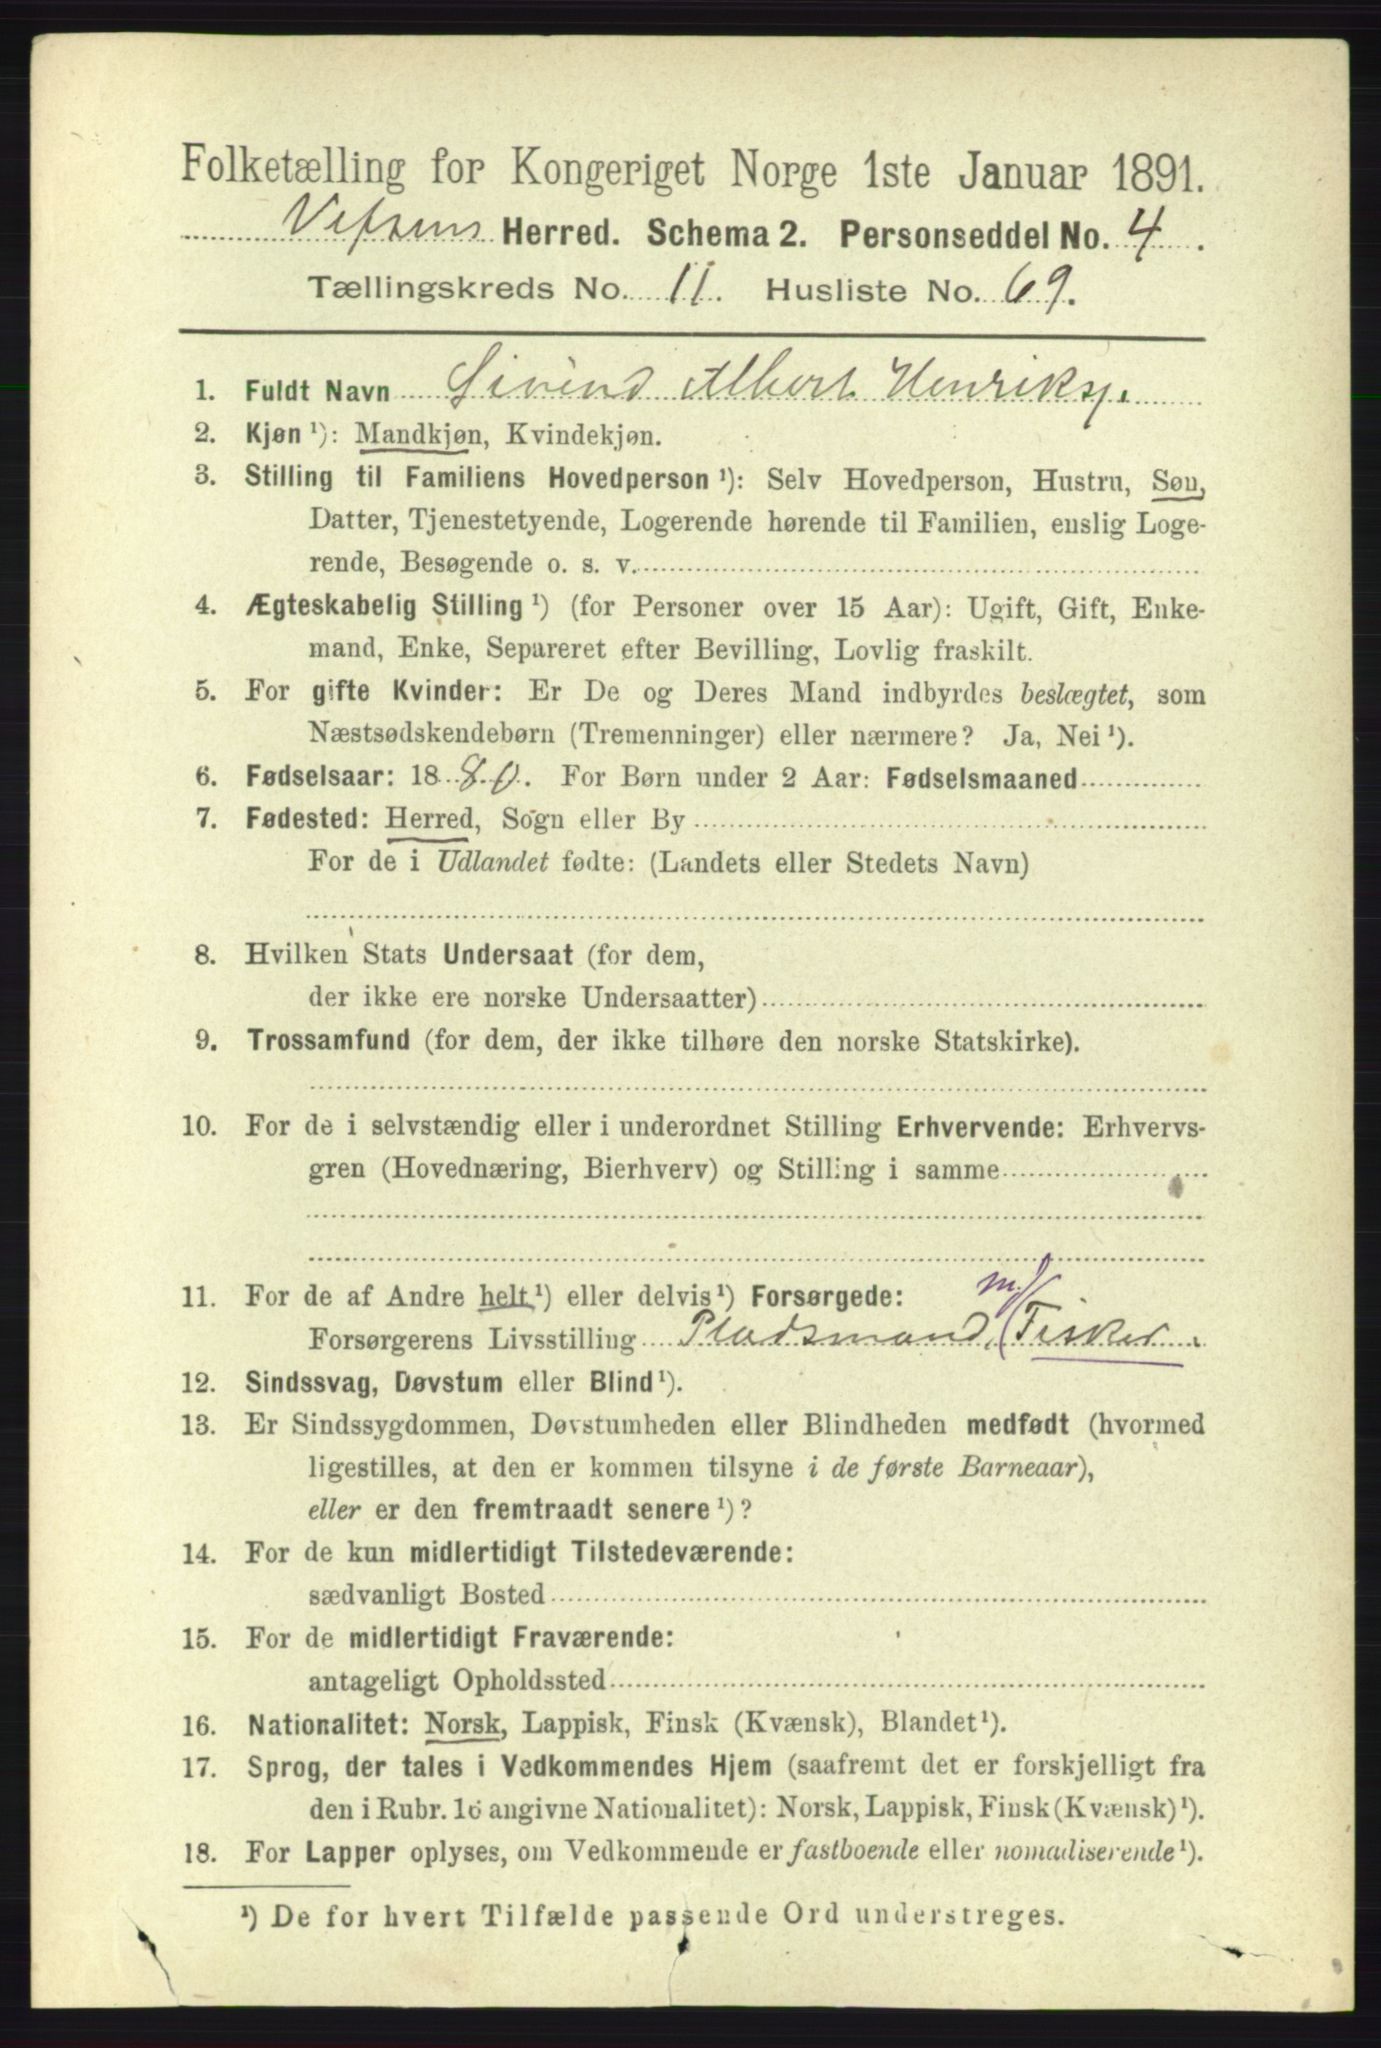 Folketælling for Kongeriget Norge 1ste Januar 1891.
Vefsens Herred. Schema 2. Personseddel No. 4.
Tællingskreds No. 11. Husliste No. 69.
1. Fuldt Navn Sivend Albert Henriks.
2. Kjøn¹): Mandkjøn, Kvindekjøn.
3. Stilling til Familiens Hovedperson¹): Selv Hovedperson, Hustru, Søn,
Datter, Tjenestetyende, Logerende hørende til Familien, enslig Loge-
rende, Besøgende o. s. v.
4. Ægteskabelig Stilling¹) (for Personer over 15 Aar): Ugift, Gift, Enke-
mand, Enke, Separeret efter Bevilling, Lovlig fraskilt.
5. For gifte Kvinder: Er De og Deres Mand indbyrdes beslægtet, som
Næstsødskendebørn (Tremenninger) eller nærmere? Ja, Nei¹).
6. Fødselsaar: 1880. For Børn under 2 Aar: Fødselsmaaned
7. Fødested: Herred, Sogn eller By
For de i Udlandet fødte: (Landets eller Stedets Navn)
8. Hvilken Stats Undersaat (for dem,
der ikke ere norske Undersaatter)
9. Trossamfund (for dem, der ikke tilhøre den norske Statskirke).
10. For de i selvstændig eller i underordnet Stilling Erhvervende: Erhvervs-
gren (Hovednæring, Bierhverv) og Stilling i samme
11. For de af Andre helt¹) eller delvis¹) Forsørgede:
Forsørgerens Livsstilling Pladsmand, m/ Fisker.
12. Sindssvag, Døvstum eller Blind¹).
13. Er Sindssygdommen, Døvstumheden eller Blindheden medfødt (hvormed
ligestilles, at den er kommen tilsyne i de første Barneaar),
eller er den fremtraadt senere¹)?
14. For de kun midlertidigt Tilstedeværende:
sædvanligt Bosted
15. For de midlertidigt Fraværende:
antageligt Opholdssted
16. Nationalitet: Norsk, Lappisk, Finsk (Kvænsk), Blandet¹).
17. Sprog, der tales i Vedkommendes Hjem (saafremt det er forskjelligt fra
den i Rubr. 16 angivne Nationalitet): Norsk, Lappisk, Finsk (Kvænsk)¹).
18. For Lapper oplyses, om Vedkommende er fastboende eller nomadiserende¹).
¹) De for hvert Tilfælde passende Ord understreges.